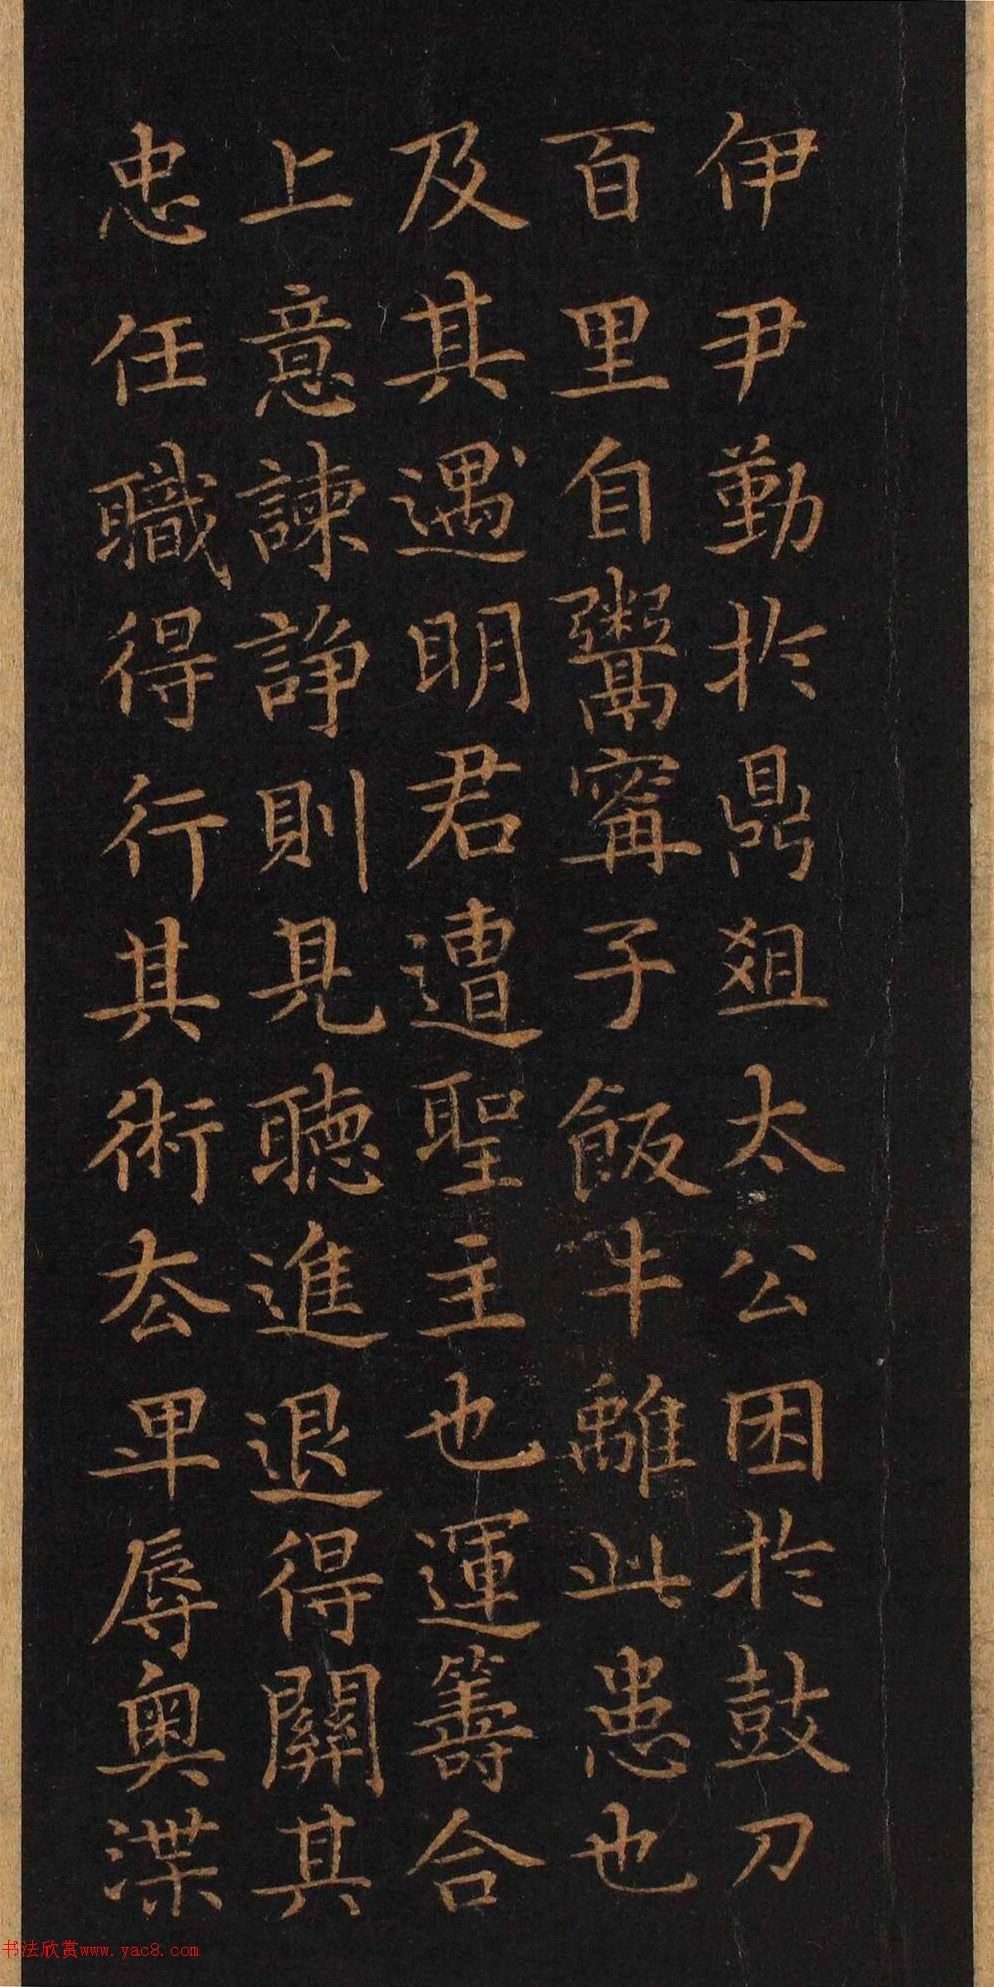 伊尹勤於鼎俎太公困於鼓刀
百里自鬻甯子飯牛離此患也
及其遇明君遭聖主也運籌合
上意諫諍則見聽進退得關其
忠任職得行其術去卑辱奧渫
书法欣赏www.yac8.com